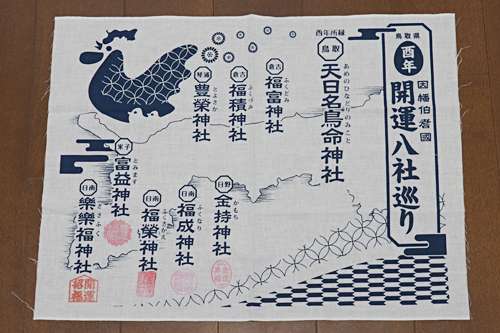 鳥取県
酉年
因幡伯耆國
開運八社巡り
酉年所縁
鳥取
天日名鳥命神社
あめのひなどりのみこと
倉吉
福富神社
ふくどみ
倉吉
福積神社
ふくづみ
琴浦
豊榮神社
とよさか
米子
富益神社
とみます
日野
金持神社
かもち
日南
福成神社
ふくなり
日南
福榮神社
ふくさかえ
日南
樂樂福神社
ささふく
開運
招福